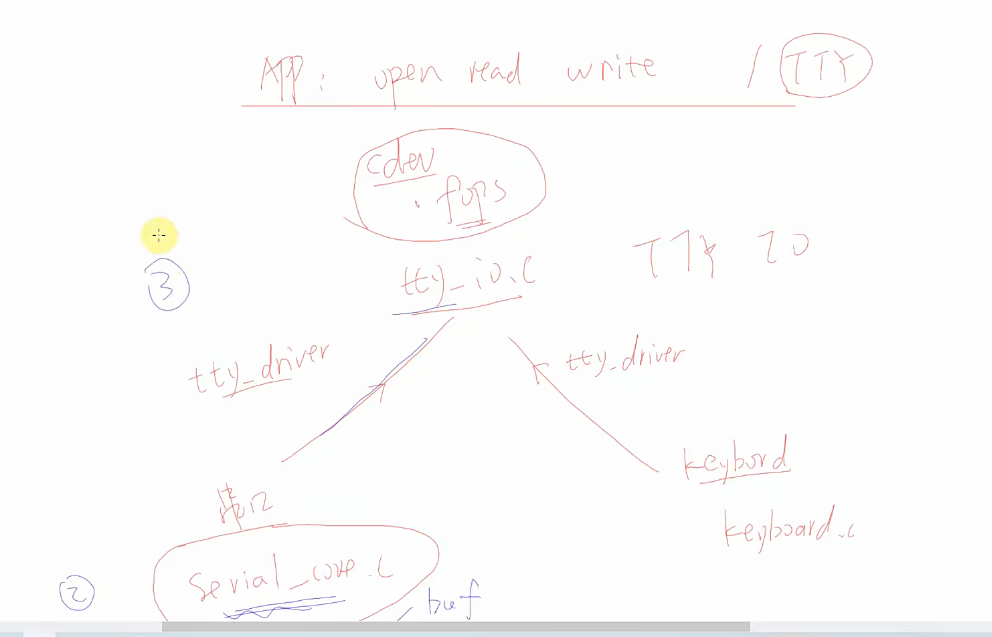 APP: open read write / TTY
cdev
. fops
tty_io.c
TTY IO
③
tty_driver
tty_driver
keybord
串口
keyboard.c
serial_core.c
②
, buf